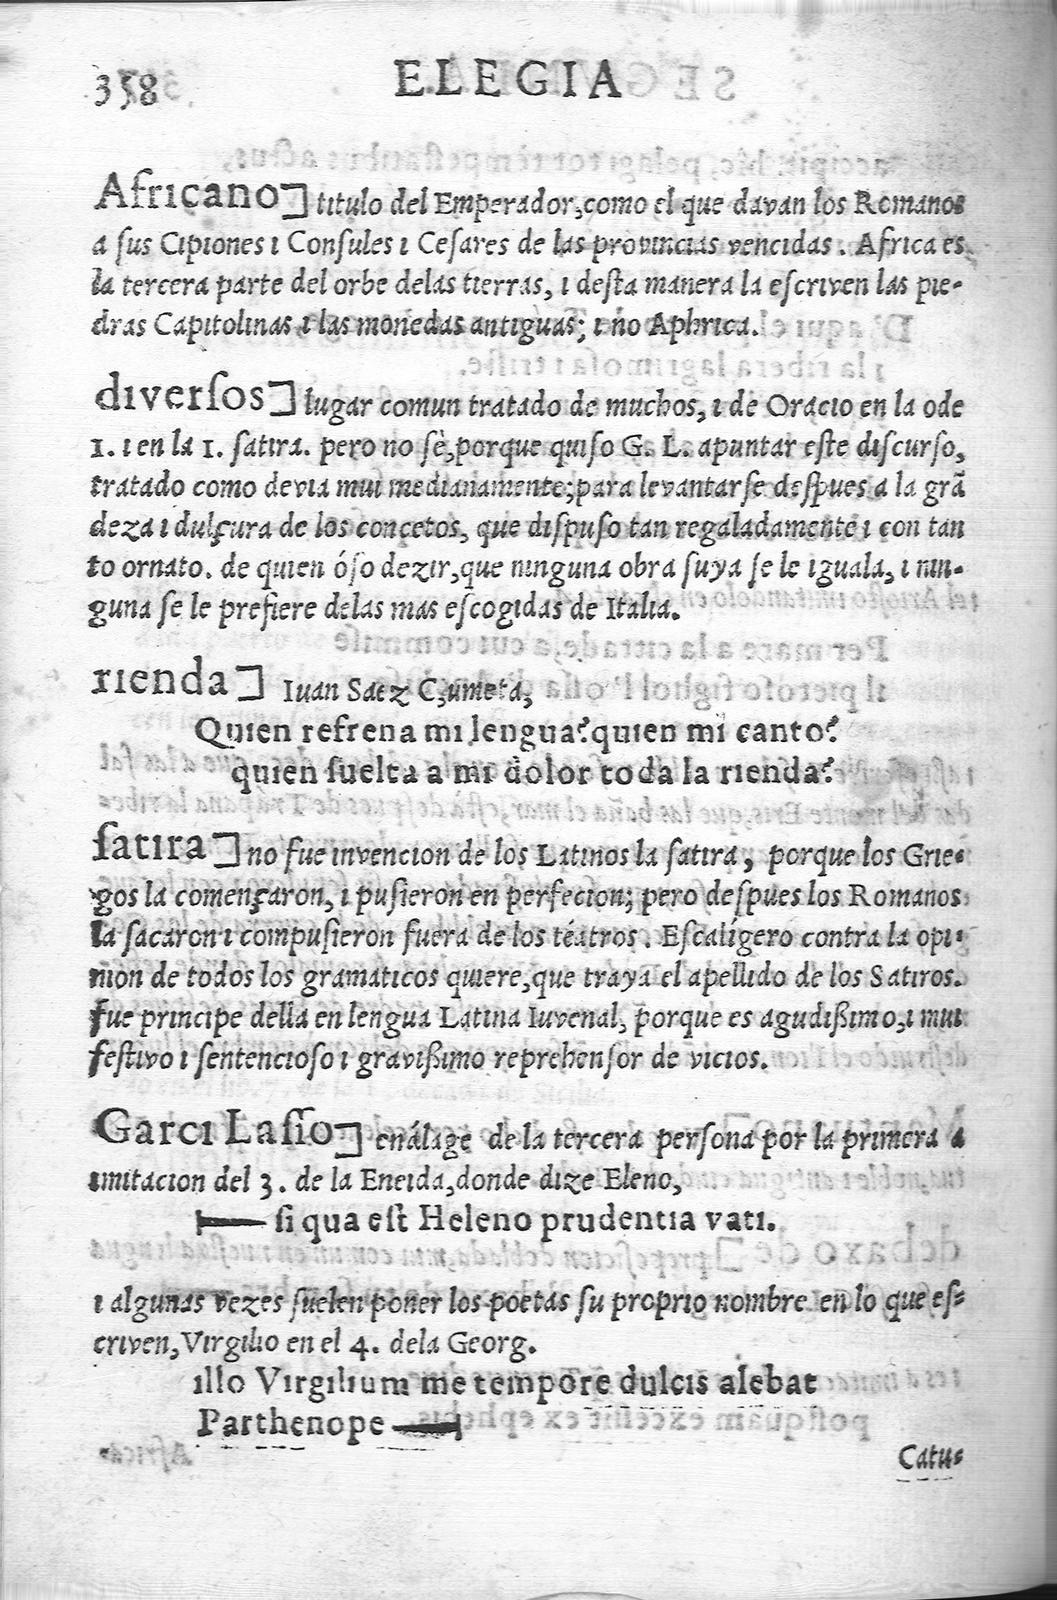 358 ELEGIA
Africano] titulo del Emperador, como el que davan los Romanos
a sus Cipiones ı Consules ı Cesares de las provincias vencidas. Africa es
la tercera parte del orbe delas tierras, ı desta manera la escriven las pie-
dras Capitolinas ı las monedas antiguas; ı no Aphrica.
diverſos] lugar comun tratado de muchos, ı de Oracio en la ode
1. ı en la 1. ſatira. pero no sè, porque quiſo G. L. apuntar eſte diſcurſo,
tratado como devia mui medianamente; para levantarſe deſpues a la grã
deza ı dulçura de los concetos, que diſpuſo tan regaladamente ı con tan
to ornato. de quien óſo dezir, que ninguna obra ſuya ſe le iguala, ı nin-
guna ſe le prefiere delas mas eſcogidas de Italia.
rienda] Iuan Saez Çumeta,
Quien refrena mi lengua? quien mi canto?
quien ſuelta a mi dolor toda la rienda?
ſatira] no fue invencion de los Latinos la ſatira, porque los Grie-
gos la començaron, ı puſieron en perfecion; pero deſpues los Romanos
la ſacaron ı compuſieron fuera de los téatros. Eſcalígero contra la opi-
nion de todos los gramaticos quiere, que traya el apellido de los Satiros.
fue principe della en lengua Latina Iuvenal, porque es agudißimo, ı mui
feſtivo ı ſentencioſo ı gravißimo reprehenſor de vicios.
Garci Laſſo] enálage de la tercera perſona por la primera a
imitacion del 3. de la Eneida, donde dize Eleno,
— ſi qua eſt Heleno prudentia vati.
ı algunas vezes ſuelen poner los poetas ſu proprio nombre en lo que eſ-
criven, Virgilio en el 4. dela Georg.
illo Virgilium me tempore dulcis alebat
Parthenope —
Catu-